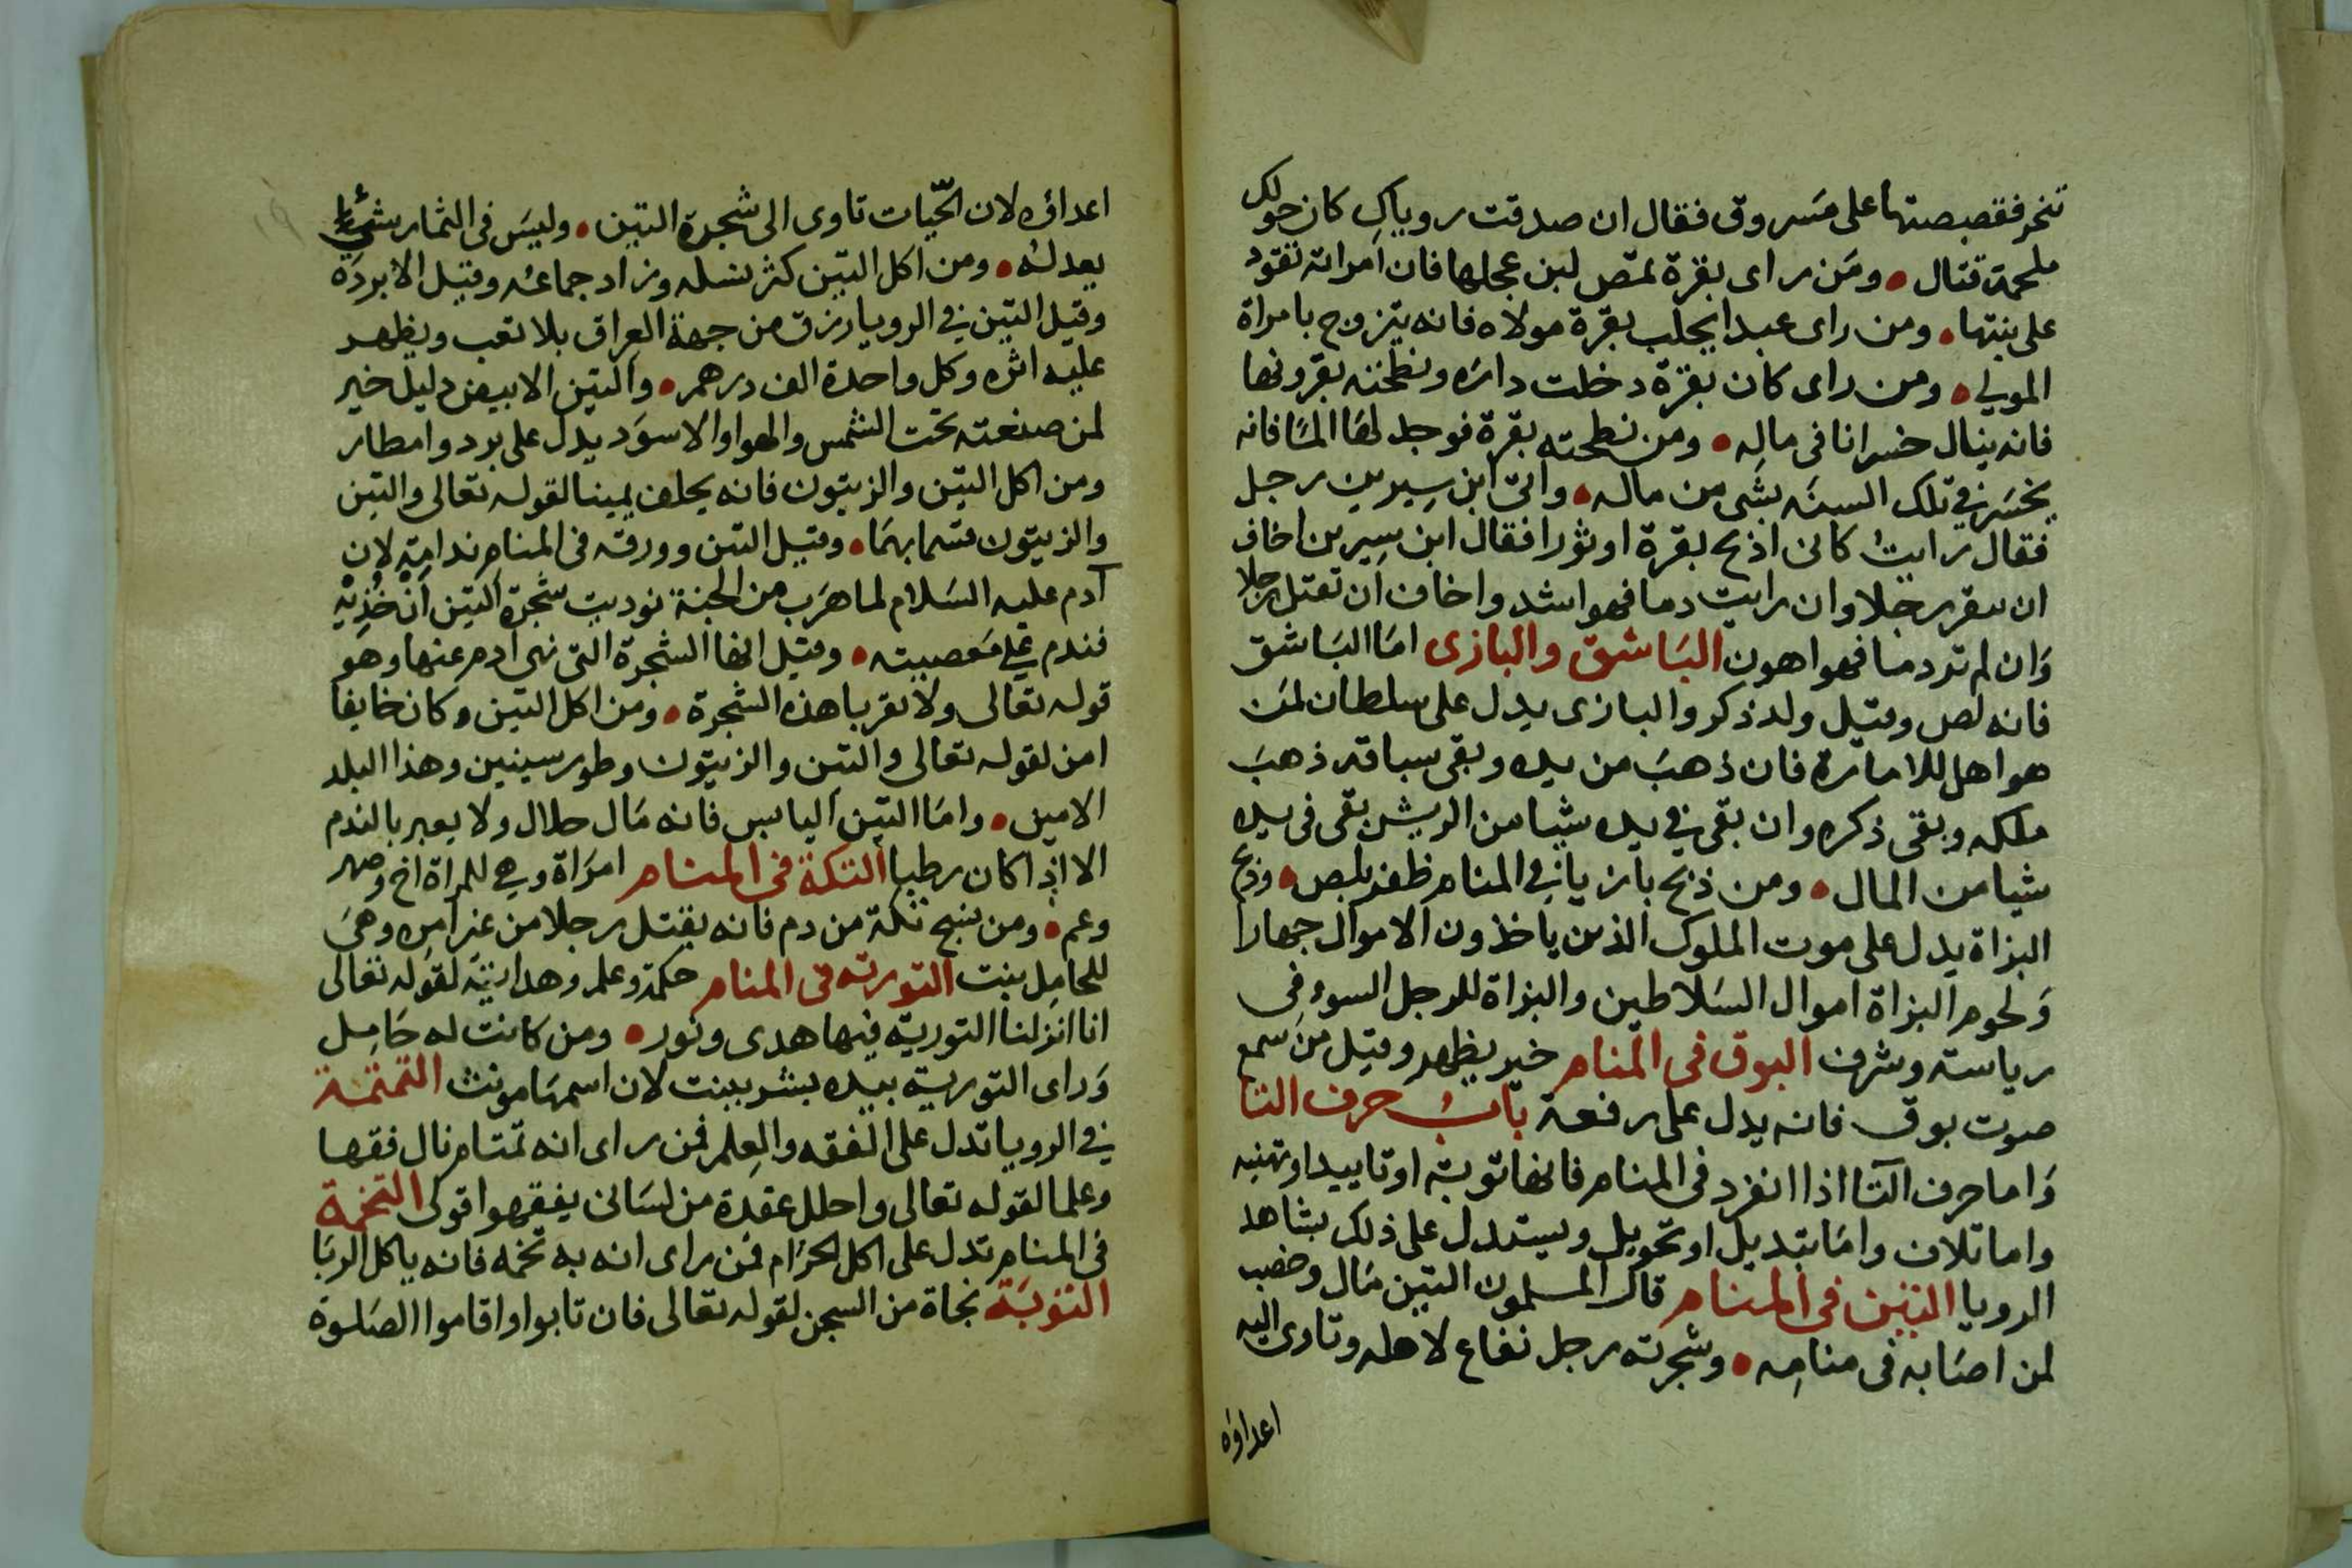 تنحر فقصصتها على مسروق فقال ان صدقت روياك كان حولك
ملحمة قتال • ومن راى بقرة تمص لبن عجلها فان امراته تقود
على بنتها • ومن راى عبدا يحلب بقرة مولاه فانه يتزوج بامراة
المولى • ومن راى كان بقرة دخلت داره ونطحته بقرونها
فانه ينال خسرانا فى ماله • ومن نطحته بقرة فوجد لها المًا فانه
يخسر في تلك السنه بشى من ماله • واتى ابن سيرين رجل
فقال رايت كانى اذبح بقرة او ثورا فقال ابن سيرين اخاف
ان تبقر رجلا وان رايت دما فهو اشد واخاف ان تقتل رجلا
وان لم تر دما فهو اهون الباشق والبازى اما الباشق
فانه لص وقيل ولد ذكر والبازى يدل على سلطان لمن
هو اهل للامارة فان ذهب من يده وبقى سباقه ذهب
ملكه وبقى ذكره وان بقى في يده شيا من الريش بقى فى يده
شيا من المال • ومن ذبح بازيا في المنام ظفر بلص • وذبح
البزاة يدل على موت الملوك الذين ياخذون الاموال جهارا
ولحوم البزاة اموال السلاطين والبزاة للرجل السوء فى
رياسته وشرف البوق فى المنام خير يظهر وقيل من سمع
صوت بوق فانه يدل على رفعة باب حرف التا
واما حرف التا اذا انفرد فى المنام فانها توبة او تاييد او تهنيه
واما تلاف واما تبديل او تحويل ويستدل على ذلك بشاهد
الرويا التين فى المنام قال المسلمون التين مال وخصب
لمن اصابه فى منامه • وشجرته رجل نفاع لاهله وتاوى اليه
اعداوه
اعداؤه لان الحيّات تاوى الى شجرة التين • وليس فى الثمار شئ
يعدله • ومن اكل التين كثر نسله وزاد جماعه وقيل الابرده
وقيل التين في الرويا رزق من جهة العراق بلا تعب ويظهر
عليه اثره وكل واحدة الف درهم • والتين الابيض دليل خير
لمن صنعته تحت الشمس والهوا والاسود يدل على برد وامطار
ومن اكل التين والزيتون فانه يحلف يمينا لقوله تعالى والتين
والزيتون قسما بهما • وقيل التين وورقه فى المنام ندامة لان
آدم عليه السلام لما هرب من الجنة نوديت شجرة التين ان خذيه
فندم على معصيته • وقيل انها الشجرة التى نهى ادم عنها وهو
قوله تعالى ولا تقربا هذه الشجرة • ومن اكل التين وكان خايفا
امن لقوله تعالى والتين والزيتون وطور سينين وهذا البلد
الامين • واما التين اليابس فانه مال حلال ولا يعبر بالندم
الا اذا كان رطبا التكة فى المنام امراة وهي للمراة اخ وصهر
وعم • ومن ينسج تكة من دم فانه يقتل رجلا من غير امره وهى
للحامل بنت التورته فى المنام حكمة وعلم وهداية لقوله تعالى
انا انزلنا التورية فيها هدى ونور • ومن كانت له حامل
وراى التورية بيده يبشر ببنت لان اسمها مونث التمتمة
في الرويا تدل على الفقه والعلم فمن راى انه تمتام نال فقها
وعلما لقوله تعالى واحلل عقدة من لسانى يفقهوا قولى التخمة
فى المنام تدل على اكل الحرام فمن راى انه به تخمه فانه ياكل الربا
التوبة نجاة من السجن لقوله تعالى فان تابوا واقاموا الصلوة